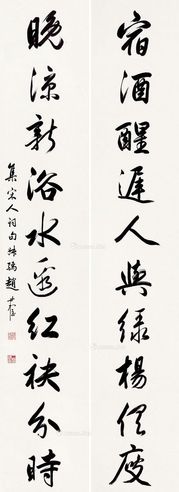 宿酒醒遲人與綠楊俱瘦
晚涼新浴水邊紅袂分時
集宋人詞句 趙